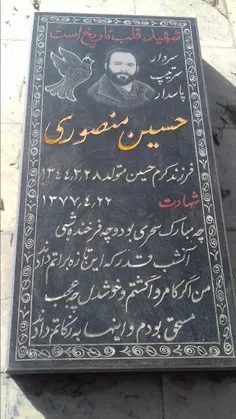 شهید قلب تاریخ است
سردار
سرتیپ
پاسدار
حسین منصوری
فرزند کرم حسین متولد ۱۳۴۴،۲،۲۸
شهادت ۱۳۷۷،۴،۲۲
چه مبارک سحری بود و چه فرخنده شبی
آنشب قدر که این تازه براتم دادند
من اگر کامروا گشتم و خوشدل چه عجب
مستحق بودم و اینها به زکاتم دادند